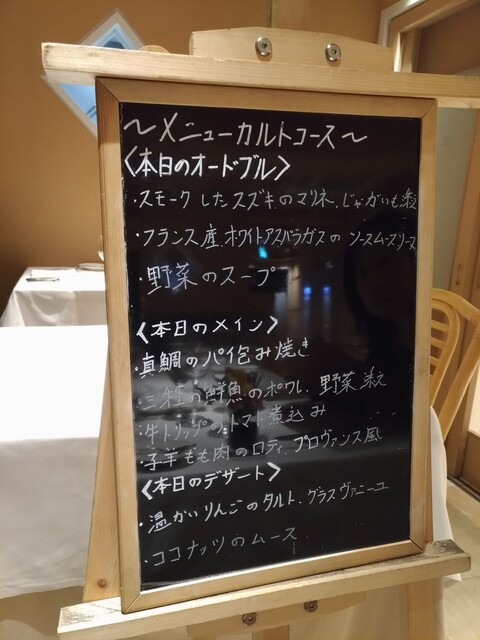 〜メニューカルトコース〜
〈本日のオードブル〉
・スモークしたスズキのマリネ、じゃがいも添え
・フランス産、ホワイトアスパラガスのソースムースリーヌ
・野菜のスープ
〈本日のメイン〉
・真鯛のパイ包み焼き
・三種の鮮魚のポワレ、野菜添え
・牛トリップのトマト煮込み
・子羊もも肉のロティ、プロヴァンス風
〈本日のデザート〉
・温かいりんごのタルト、グラスヴァニーユ
・ココナッツのムース